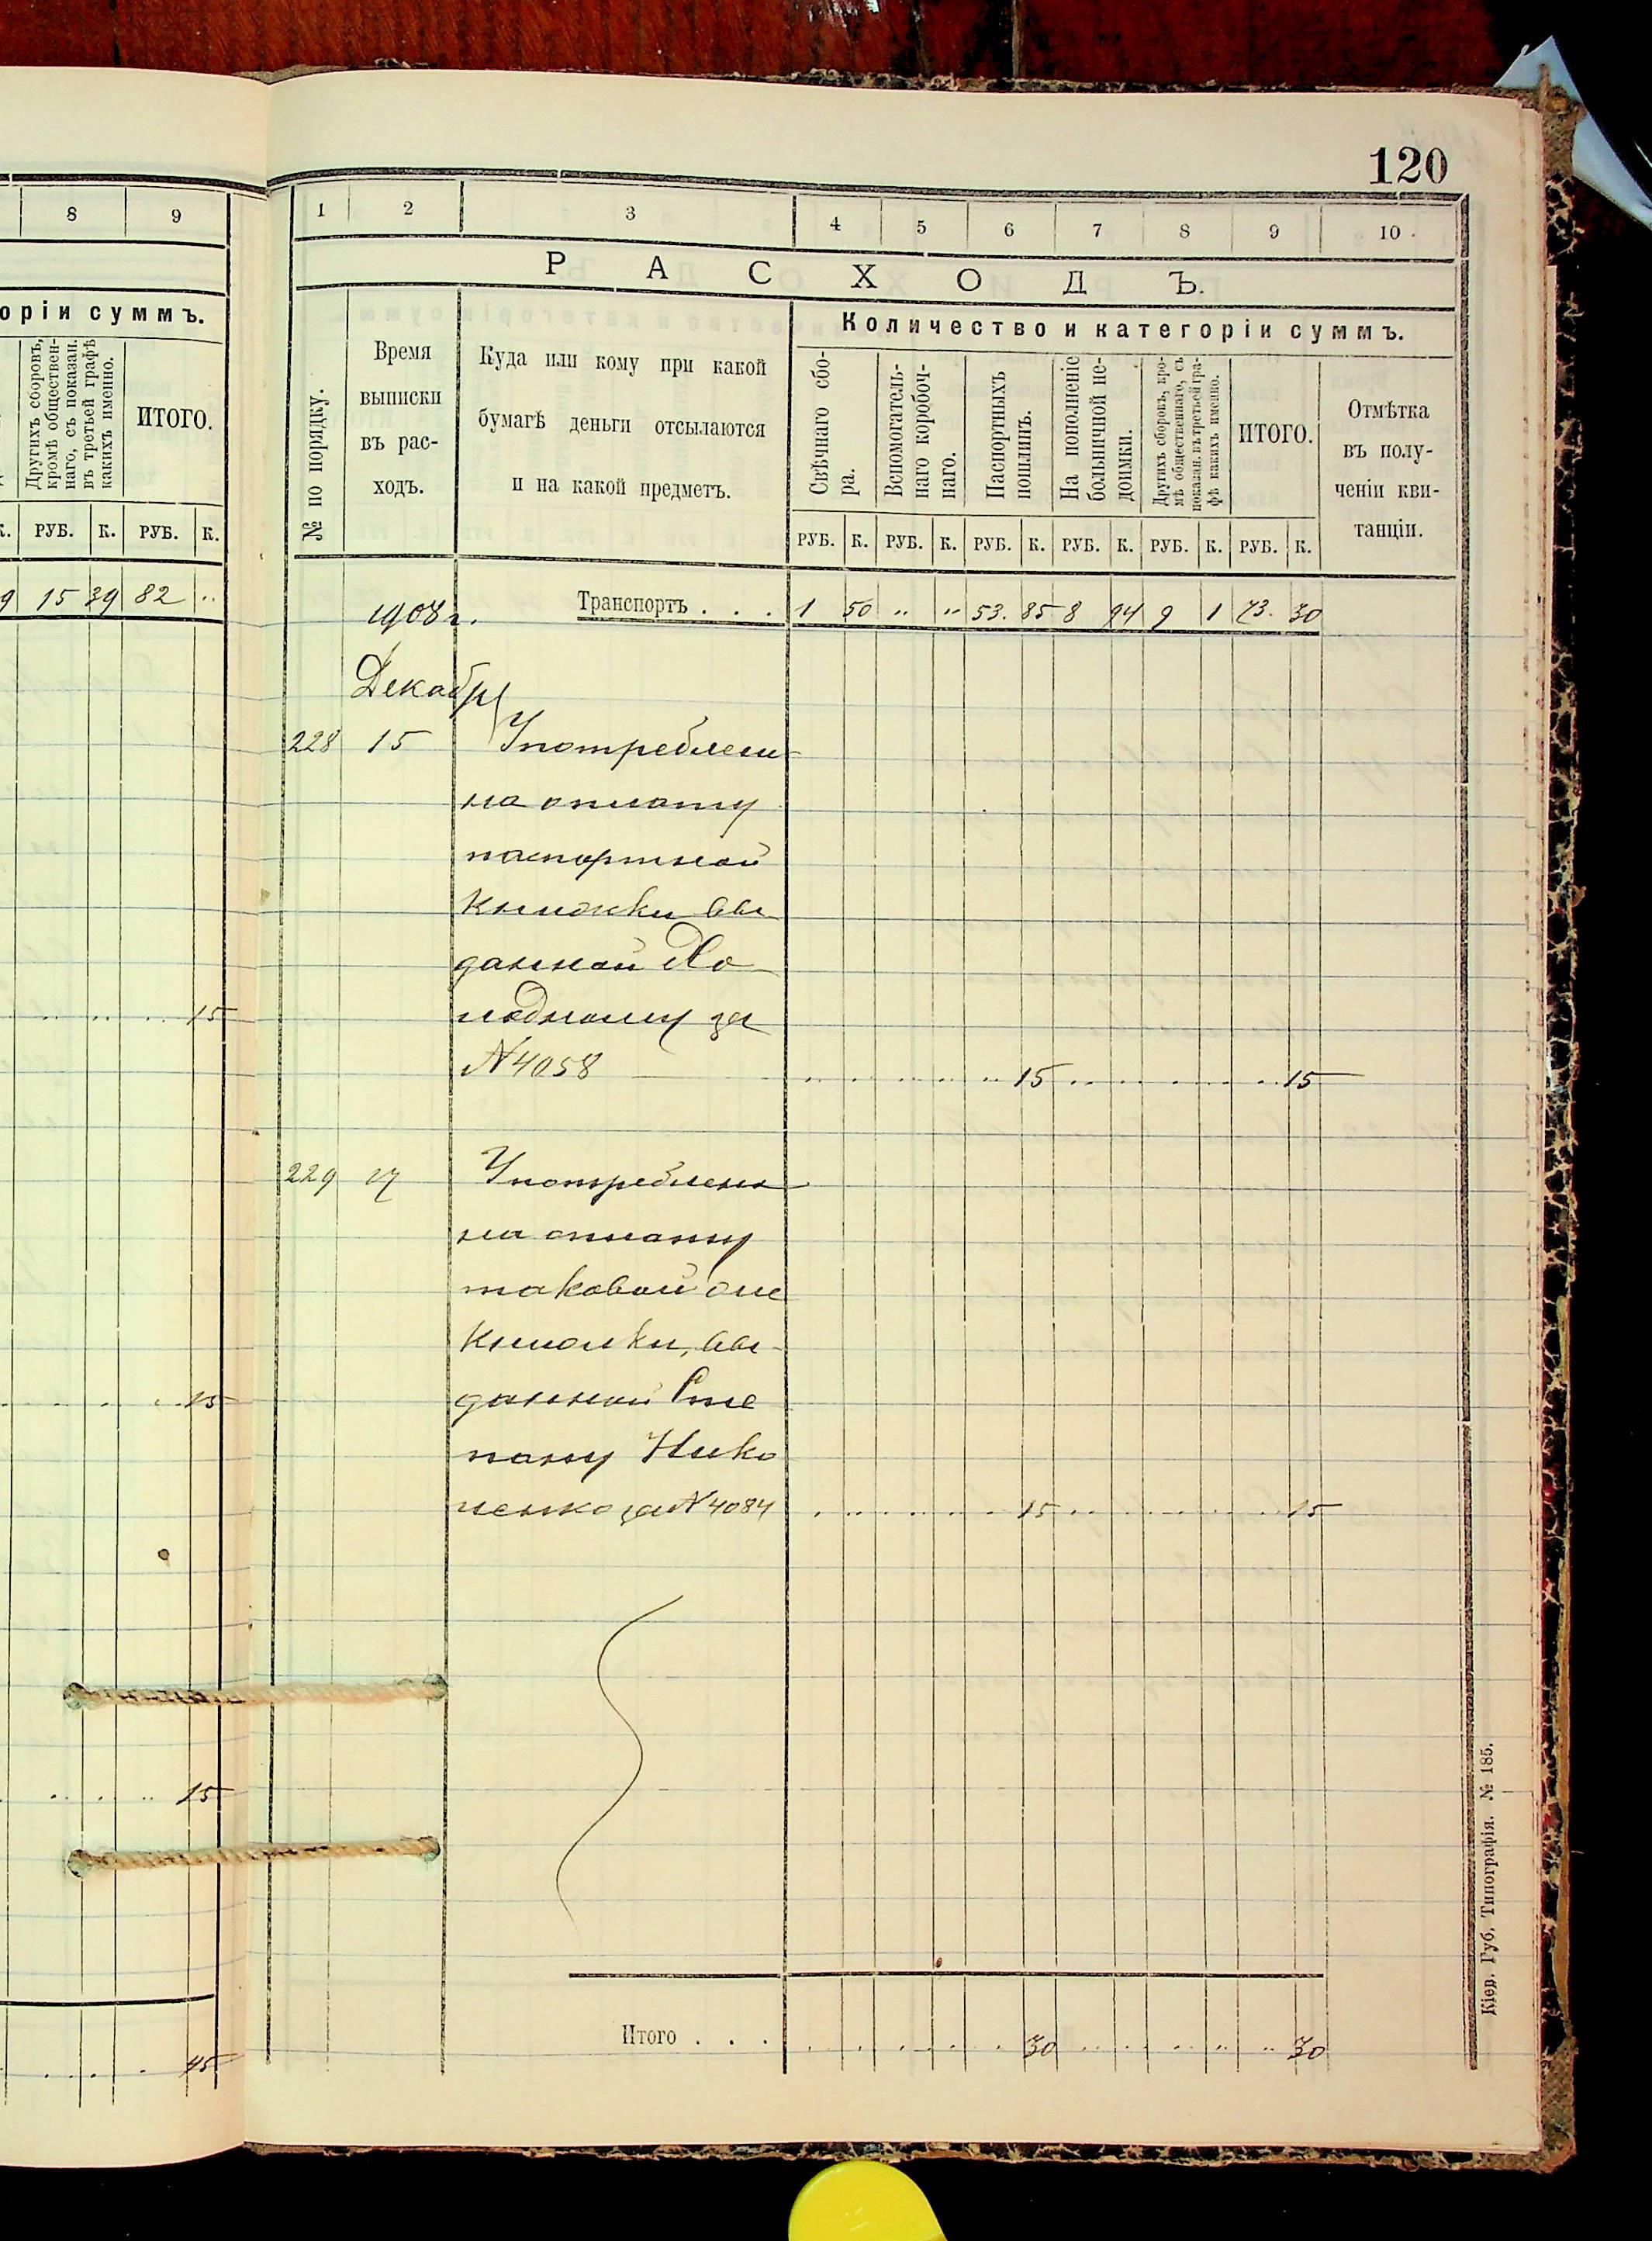 120
8 9
оріи суммъ.
Другихъ сборовъ,
кромѣ обществен-
наго, съ показан.
въ третьей графѣ
какихъ именно.
ИТОГО.
К. РУБ. К. РУБ. К.
9 15 39 82 "
15
15
15
45
1 2 3 4 5 6 7 8 9 10
РАСХОДЪ.
№ по порядку.
Время
выписки
въ рас-
ходъ.
Куда или кому при какой
бумагѣ деньги отсылаются
и на какой предметъ.
Количество и категоріи суммъ.
Свѣчнаго сбо-
ра.
Вспомогатель-
наго коробоч-
наго.
Паспортныхъ
пошлинъ.
На пополненіе
больничной не-
доимки.
Другихъ сборовъ, кро-
мѣ общественнаго, съ
показан. въ третьей гра-
фѣ какихъ именно.
ИТОГО.
Отмѣтка
въ полу-
ченіи кви-
танціи.
РУБ. К. РУБ. К. РУБ. К. РУБ. К. РУБ. К. РУБ. К.
1908 г. Транспортъ . . . 1 50 " " 53. 85 8 94 9 1 73. 30
Декабрь
228 15 Употреблени
на оплату
паспортной
книжки вы
данной Хо
лодному за
N 4058 15 15
229 17 Употреблена
на оплату
таковой же
книжки, вы-
данной Сте
пану Нико
ненко за N 4084 15 15
Итого . . . 30 30
Кіев. Губ. Типографія. № 185.